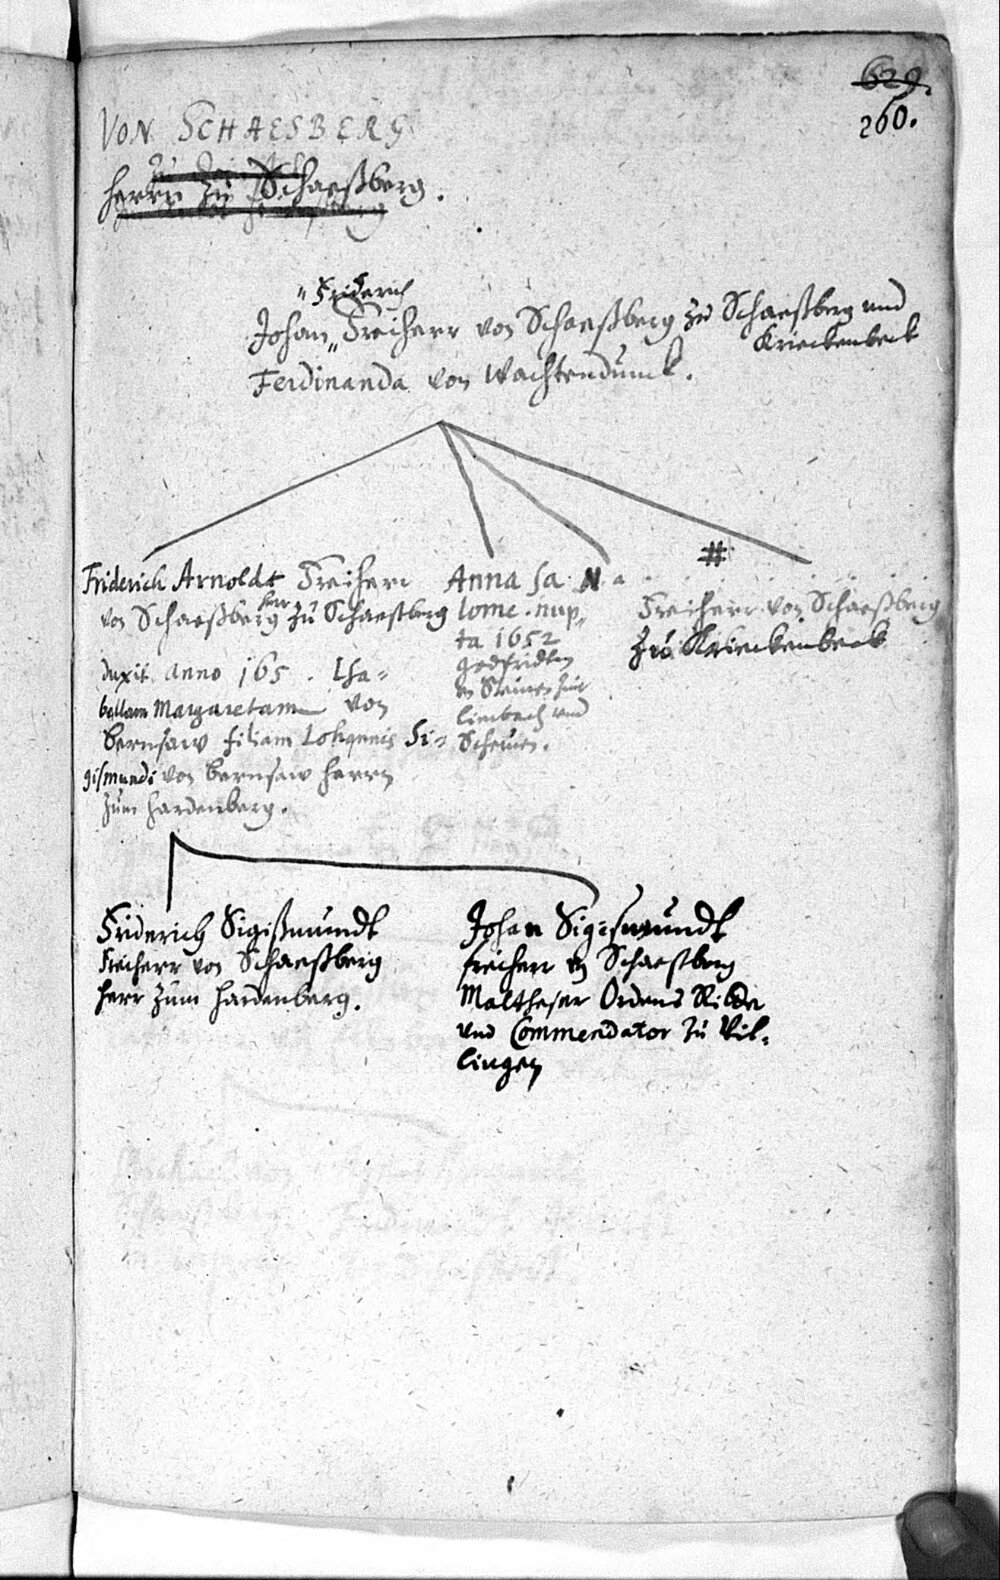 629.
260.
VON SCHAESBERG
herrn zu Schaeßberg.
" Friderich
Johan " Freiherr von Schaeßberg zu Schaeßberg und
Krieckenbeck
Ferdinanda von Wachtendunck.
#
Friderich Arnoldt Freiherr
von Schaeßberg herr zu Schaesberg
duxit anno 165 . Isa-
bellam Margaretam von
Bernsaw filiam Si-
gismundi von Bernsaw herrn
zum Hardenberg.
Anna Sa
lome . nup
ta 1652
Limbach und
N a
Freiherr von Schaeßberg
zu Krieckenbeck
Friderich Sigißmundt
Freiherr von Schaeßberg
herr zum Hardenberg.
Johan Sigismundt
freiherr von Schaesberg
Maltheser Ordens Ritter
und Commendator zu Vil-
lingen